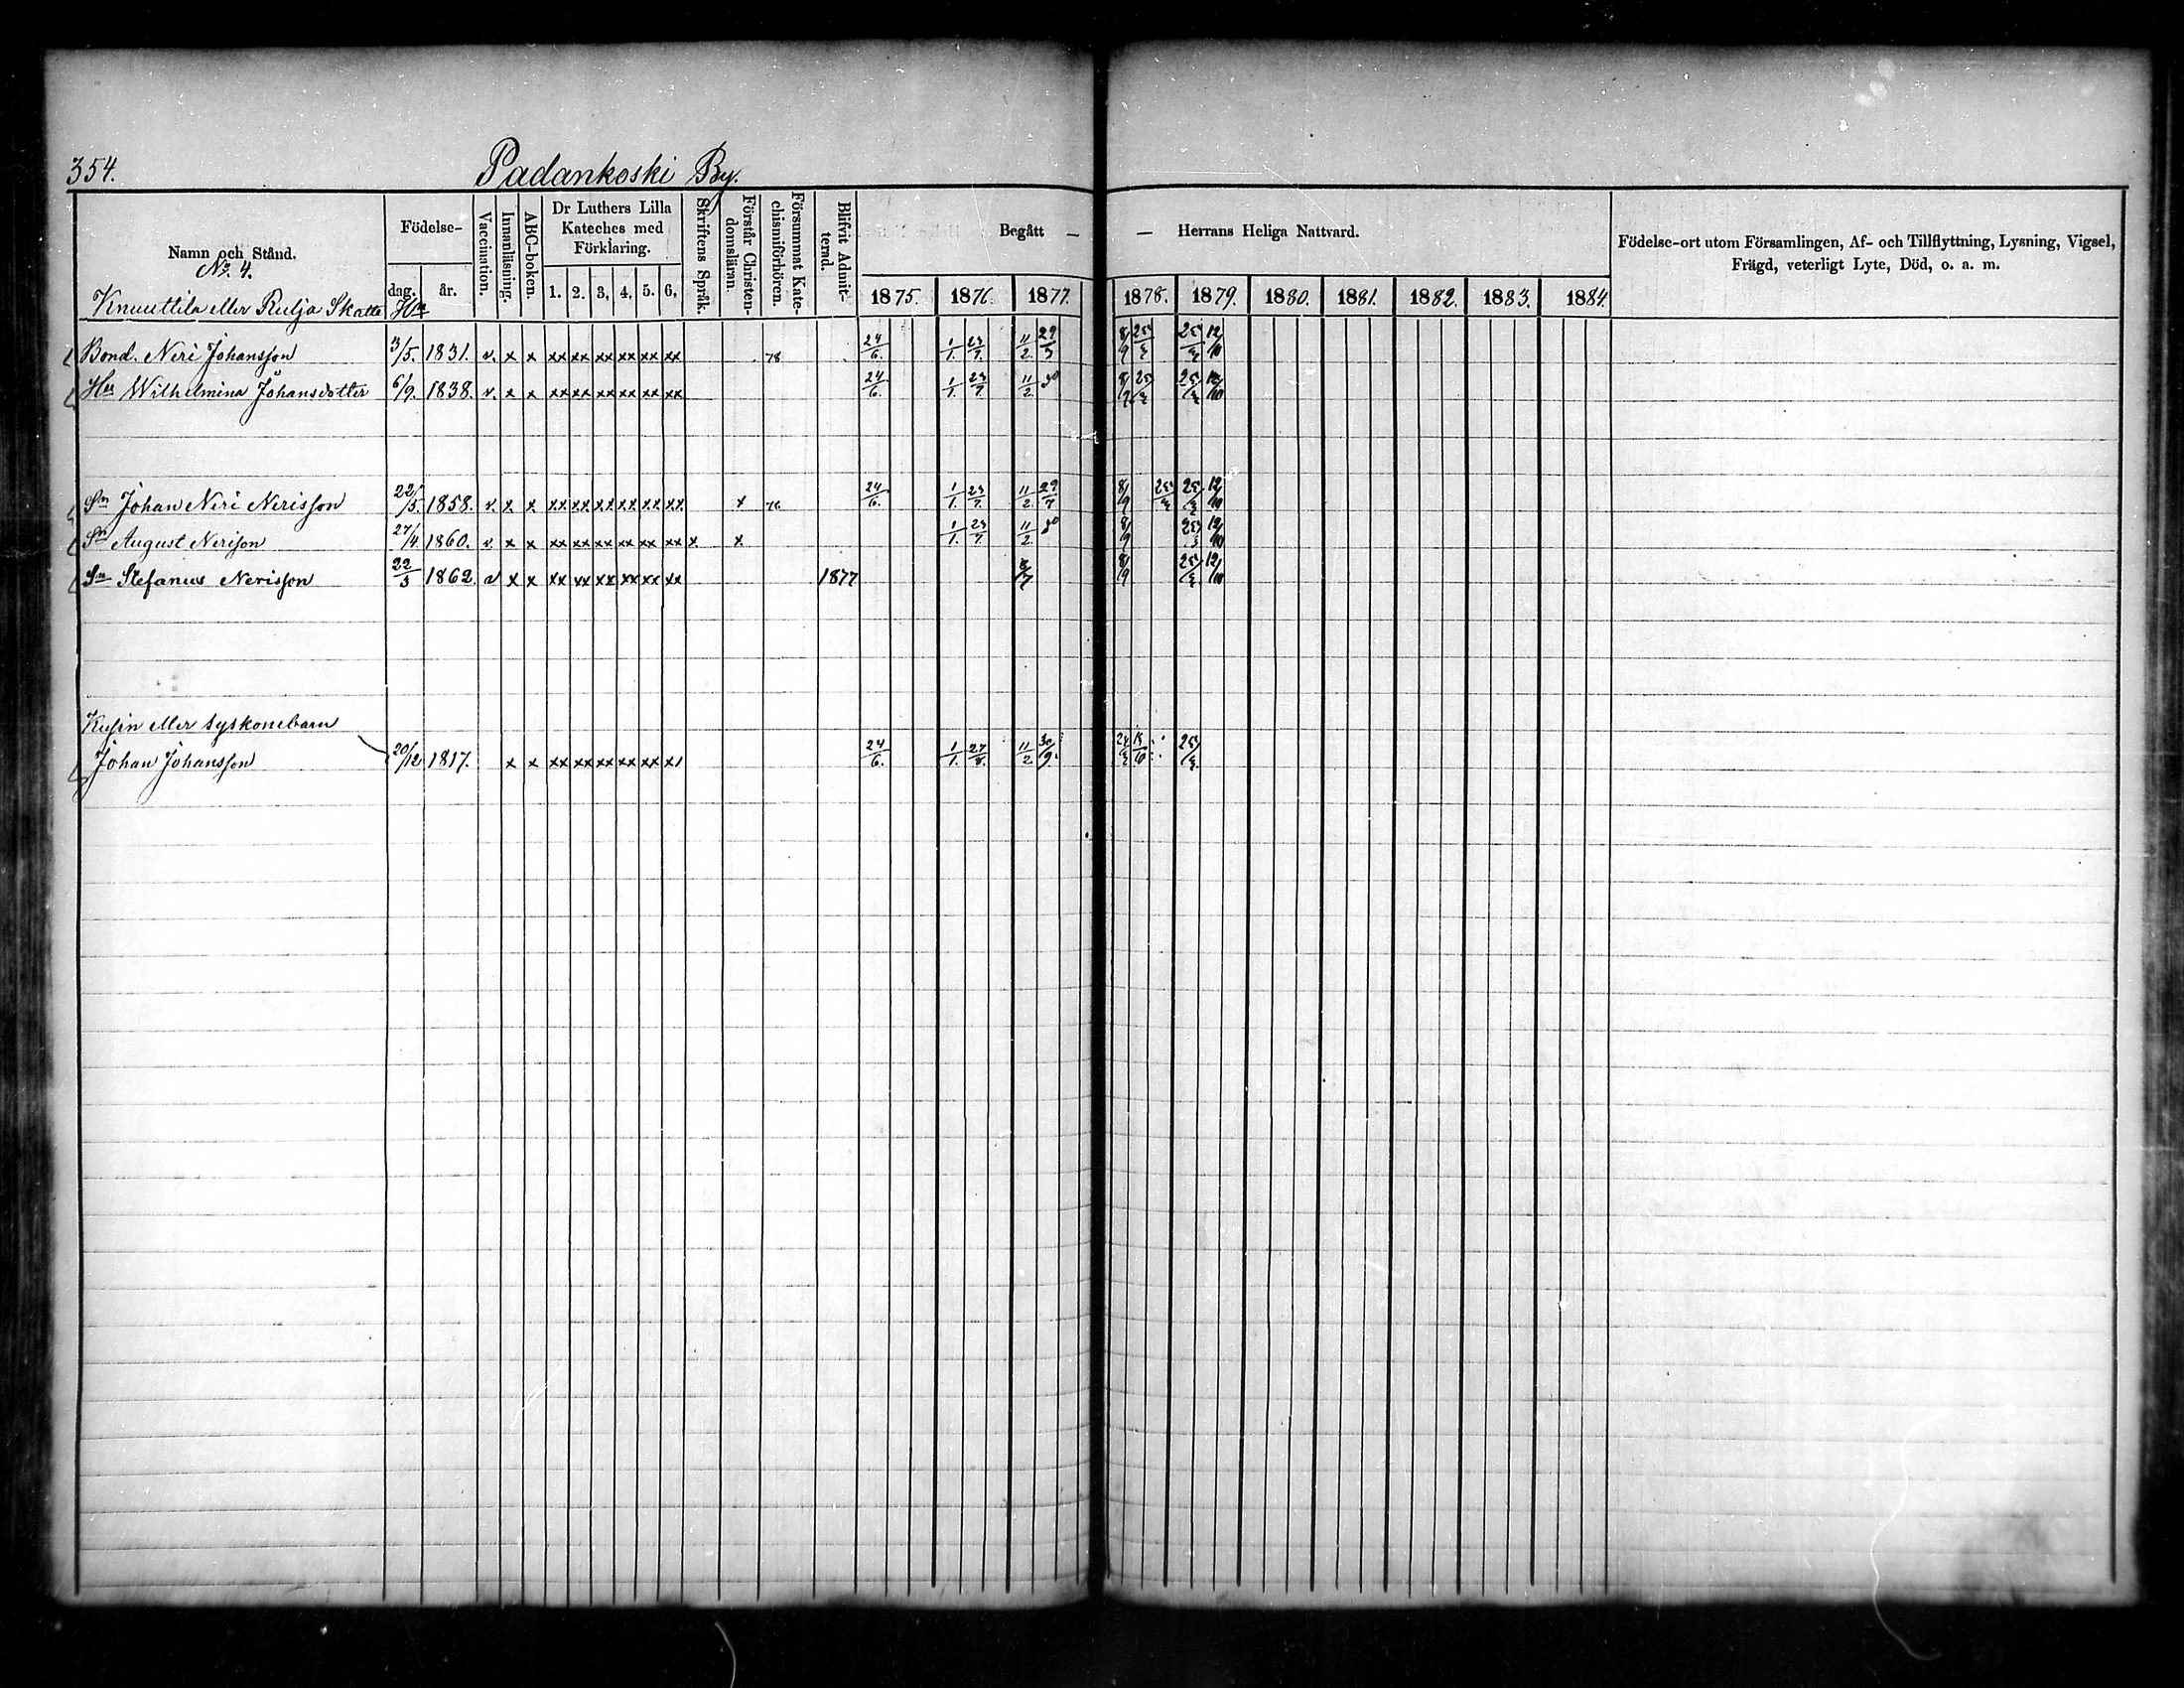 354.
Padankoski By.
Namn och Stånd.
No. 4.
Knuuttila eller Rulja Skatte Hn
Födelse-
dag.
år.
Vaccination.
Innanläsning.
ABC-boken.
Dr Luthers Lilla
Kateches med
Förklaring.
1. 2. 3. 4. 5. 6.
Skriftens Språk.
Förstår Christen-
domsläran.
Försummat Kate-
chismiförhören.
Blifvit Admit-
terad.
Begått —
— Herrans Heliga Nattvard.
1875. 1876. 1877. 1878. 1879. 1880. 1881. 1882. 1883. 1884.
Födelse-ort utom Församlingen, Af- och Tillflyttning, Lysning, Vigsel,
Frägd, veterligt Lyte, Död, o. a. m.
Bond. Neri Johansson 3/5. 1831. v. x x xx xx xx xx xx xx 78 24/6. 1/1. 23/7. 11/2 8/9 12/10
Hu Wilhelmina Johansdotter 6/9. 1838. v. x x xx xx xx xx xx xx 24/6. 1/1. 23/7. 11/2 12/10
Sn Johan Neri Nerisson 22/5. 1858. v. x x xx xx xx xx xx xx x 24/6. 1/1. 23/7. 11/2 29/7 8/9 12/10
Sn August Nerison 27/4. 1860. v. x x xx xx xx xx xx xx x x 1/1. 23/7. 11/2 8/9 12/10
Sn Stefanus Nerisson 22/3 1862. v x x xx xx xx xx xx xx 1877 8/9 12/10
Kusin eller syskonebarn
Johan Johansson 20/12 1817. x x xx xx xx xx xx x1 24/6. 1/1. 11/2 30/9.